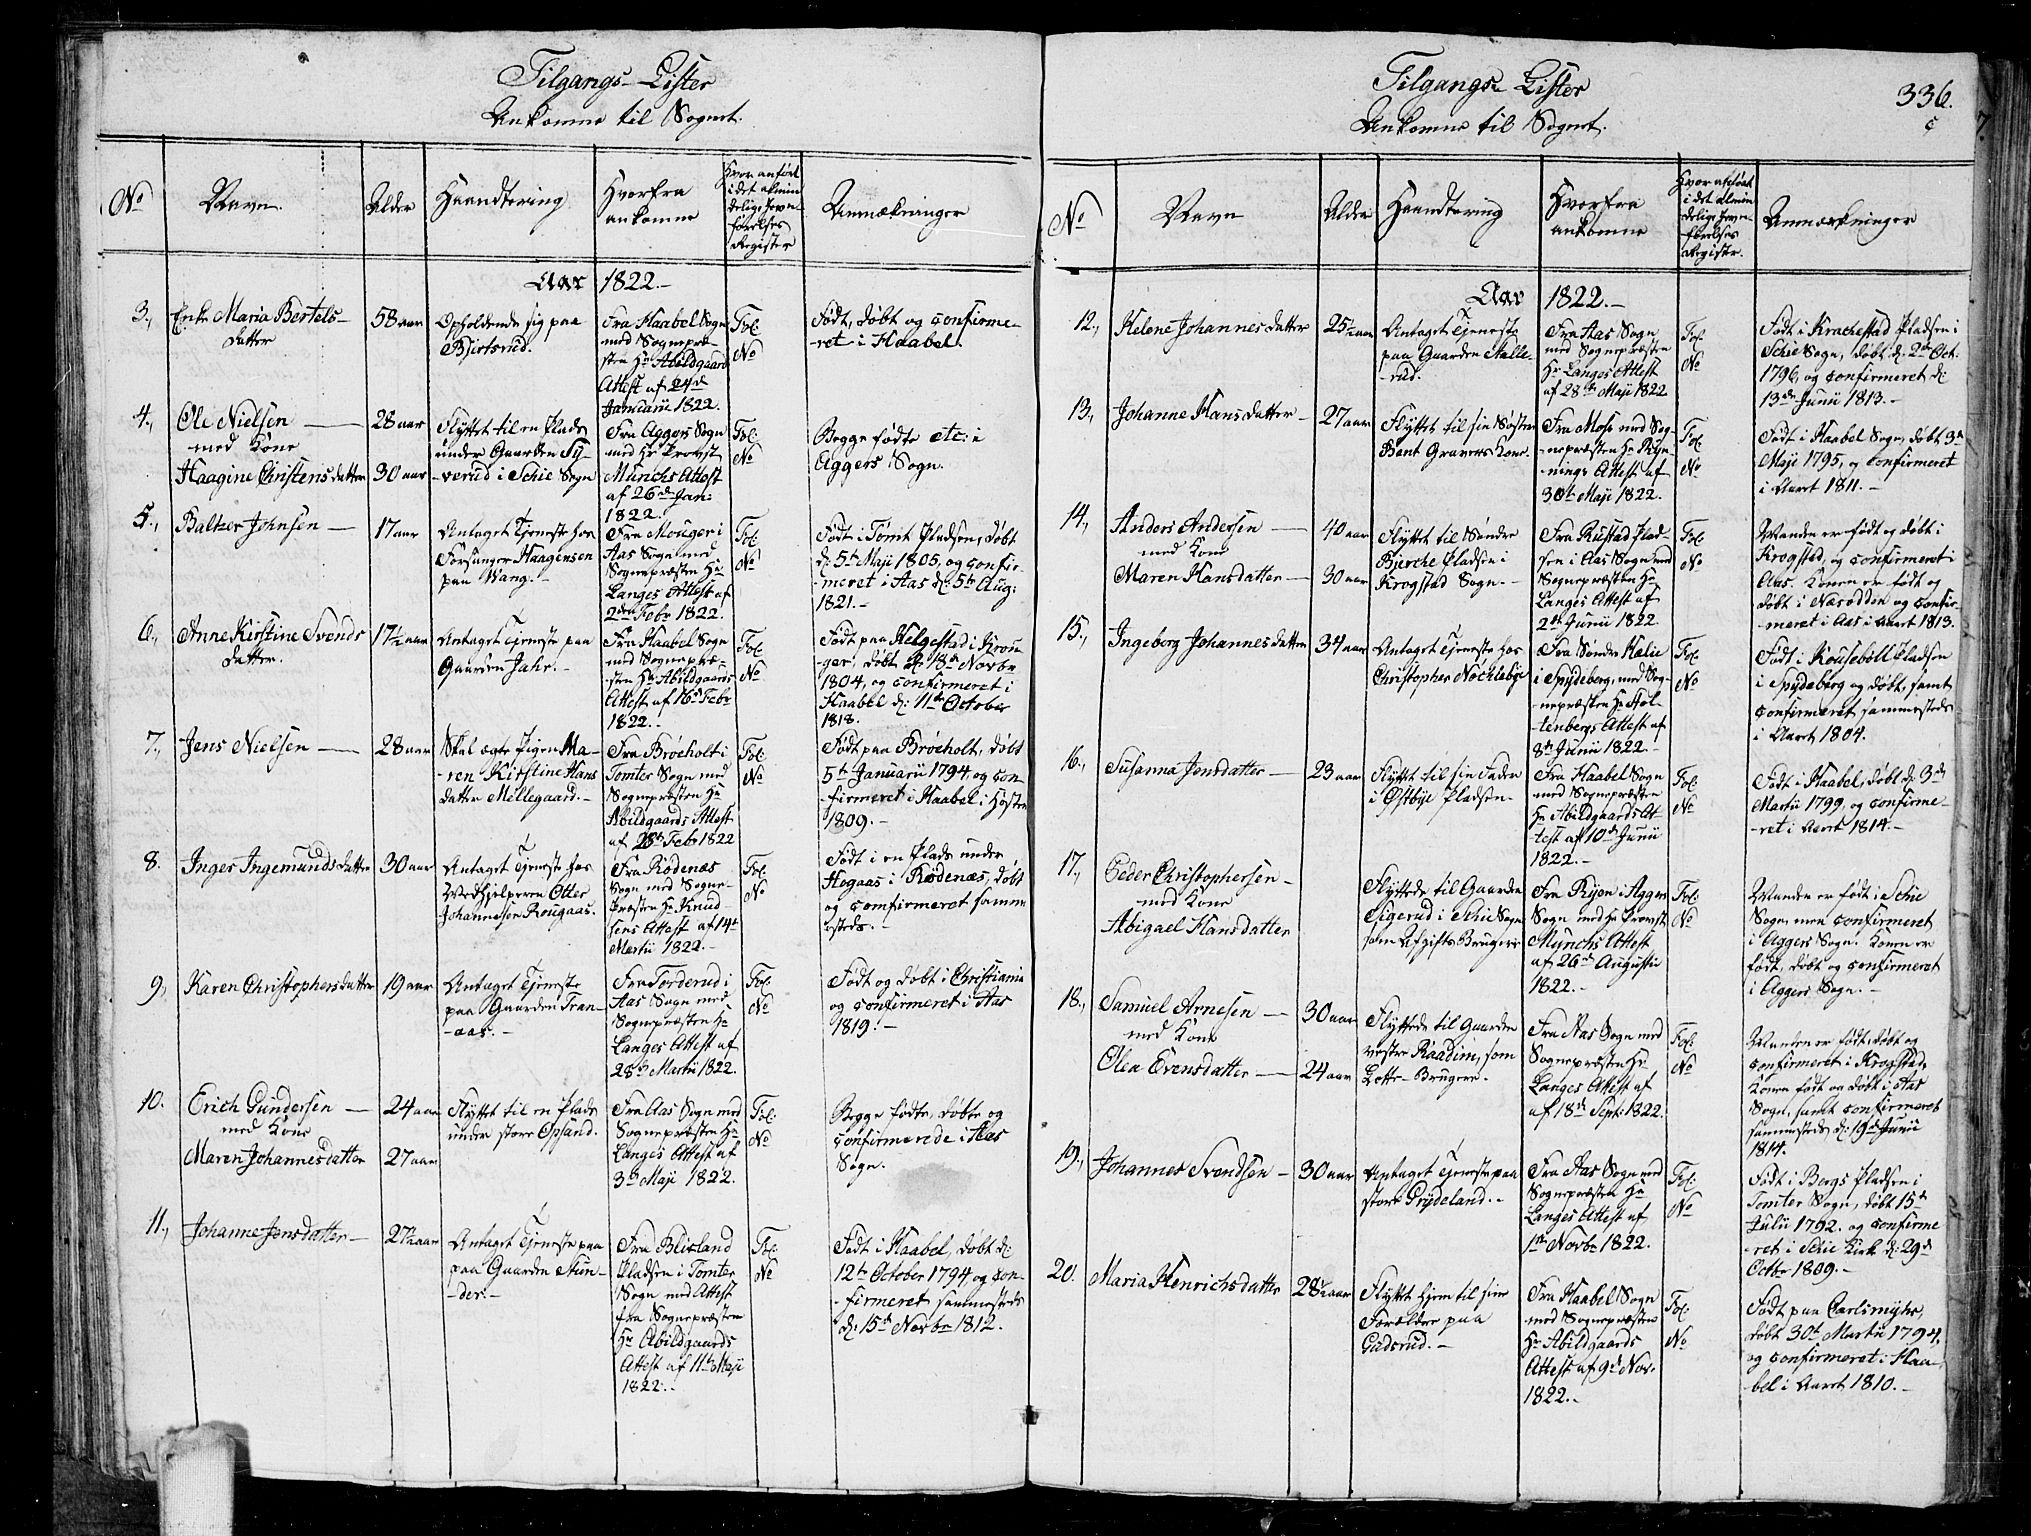 Tilgangs-Lister
Ankomne til Sognet.
No
Navn.
Alder
Haandtering
Hvorfra
ankomne
Hvor anført
i det almin
delige Jevn-
førelses
Register
Anmærkninger
Aar 1822.-
3.,
Enke Maria Bertels-
datter
58 aar
Opholdende sig paa
Bjertsrud.
Fra Haabel Sogn
med Sognepræ-
sten Hr Abildgaard
Attest af 24de
Januarii 1822.
Fol.
No
Født, døbt og confirme-
-ret i Haabel.
4.,
Ole Nielsen
med Kone
Haagine Christensdatter
28 aar
30 aar
Flyttet til en Plads
under Gaarden Sy-
-verud i Schie Sogn
Fra Aggers Sogn
med Hr Provst
Münchs Attest
af 26de Jan:
1822.
Fol.
No
Begge fødte etc: i
Aggers Sogn.
5.,
Baltzer Johnsen
17 aar
Antaget Tjeneste hos
Forsanger Haagensen
paa Wang.-
Fra Mouger i
Aas Sogn med
Sognepræsten Hr
Langes Attest af
2den Febr 1822.
Fol.
No
Født i Tømt Pladsen, døbt
d: 5te Maji 1805, og confir-
-meret i Aas d: 5te Aug:
1821.-
6.,
Anne Kirstine Svends
datter.
17½ aar
Antaget Tjeneste paa
Gaarden Jahr.-
Fra Haabel Sogn
med Sognepræ-
-sten Hr Abildgaards
Attest af 16de Febr
1822.-
Fol.
No
Født paa Helgestad i Krou
ger, døbt d: 18de Novbr
1804, og confirmeret i
Haabel d: 11te October
1818.
7.,
Jens Nielsen
28 aar
Skal ægte Pigen Ma-
-ren Kirstine Hans
datter Mellegaard.-
Fra Brøeholt i
Tomter Sogn med
Sognepræsten Hr
Abildgaards Attest
af 28de Febr 1822
Fol.
No
Født paa Brøeholt, døbt
5te Januarii 1794, og con-
-firmeret i Haabel i Høsten
1809.-
8.
Inger Ingemundsdatter
30 aar
Antaget Tjeneste hos
Medhjelperen Otter
Johannesen Rougaas.
Fra Rødenæs
Sogn med Sogne-
Præsten Hr Knud-
sens Attest af 14de
Martii 1822.-
Fol.
No
Født i en Plads under
Hogaas i Rødenæs, døbt
og confirmeret samme
steds.-
9.,
Karen Christophersdatter
19 aar
Antaget Tjeneste
paa Gaarden Fran-
-aas.-
Fra Torderud i
Aas Sogn med
Sognepræsten Hr
Langes Attest af
28de Martii 1822.
Fol.
No
Født og døbt i Christiania
og confirmeret i Aas
1819.-
10.
Erich Gundersen
med Kone
Maren Johannesdatter
24 aar
27 aar
Flyttet til en Plads
under store Opsand.
Fra Aas Sogn med
Sognepræsten Hr
Langes Attest af
3de Maji 1822.
Fol.
No
Begge fødte, døbte og
confirmerede i Aas
Sogn.
11.,
Johanne Jensdatter-
27½ aar
Antaget Tjeneste paa
paa Gaarden Stun-
-der.-
Fra Blixland
Pladsen i Tomter
Sogn med Attest
fra Sognepræsten
Hr Abildgaards
Attest af 11te Maji
1822.-
Fol.
No
Født i Haabel, døbt d:
12te October 1794, og con-
-firmeret sammesteds
d: 15de Novbr 1812.
Tilgangs-Lister
Ankomne til Sognet.
336.
No
Navn
Alder
Haandtering
Hvorfra
ankomne
Hvor anført
i det almin
delige Jevn-
-førelses
Register.
Anmærkninger
Aar 1822.-
12.,
Helene Johannesdatter
25½ aar
Antaget Tjeneste
paa Gaarden Stalle-
-rud.
Fra Aas Sogn,
med Sognepræsten
Hr Langes Attest
af 28de Maji 1822
Fol.
No
Født i Krachestad Pladsen i
Schie Sogn, døbt d: 2de Oct.
1796, og confirmeret d:
13de Junii 1813.-
13.,
Johanne Hansdatter-
27 aar
Flyttet til sin Søster
Bent Gravers Kone.
Fra Moss med Sog-
-nepræsten Hr Ryn-
-nings Attest af
30te Maji 1822.
Fol.
No
Født i Haabel Sogn, døbt 3de
Maji 1795, og confirmeret
i Aaret 1811.-
14.,
Anders Andersen
med Kone
Maren Hansdatter-
40 aar
30 aar
Flyttet til Søndre
Bjerche Pladsen i
Krogstad Sogn.-
Fra Rustad Plad-
sen i Aas Sogn med
Sognepræsten Hr
Langes Attest af
2de Junii 1822
Fol.
No
Manden er født og døbt i
Krogstad, og confirmeret i
Aas. Konen er født og
døbt i Næsodden og confir-
-meret i Aas i Aaret 1813.
15.,
Ingeborg Johannesdatter
34 aar
Antaget Tjeneste hos
Christopher Nøchlebye
Fra Søndre Hælie
i Spydeberg, med Sog-
-nepræsten Hr Hol-
-tenbergs Attest af
8de Junii 1822.-
Fol.
No
Født i Kousebøll Pladsen
i Spydeberg og døbt, samt
confirmeret sammesteds
i Aaret 1804.
16.,
Susanna Jensdatter-
23 aar
Flyttet til sin Fader
i Østbye Pladsen.
Fra Haabel Sogn
med Sognepræsten
Hr Abildgaards At-
test af 10de Junii
1822.-
Fol.
No
Født i Haabel, døbt d: 3de
Martii 1799, og confirme-
-ret i Aaret 1814.-
17.,
Peder Christophersen-
med Kone
Abigael Hansdatter
Flyttede til Gaarden
Sigerud i Schie Sogn
som Afgifts Brugere
Fra Ryen i Aggers
Sogn med Hr Provst
Münchs Attest
af 26de Augustii
1822.-
Fol.
No
Manden er født i Schie
Sogn, men confirmeret
i Aggers Sogn. Konen er
født, døbt og confirmeret
i Aggers Sogn.-
18.,
Samuel Arnesen
med Kone
Olea Evensdatter
30 aar
24 aar
Flyttede til Gaarden
vestre Raadim, som
Lotte-Brugere.
Fra Aas Sogn med
Sognepræsten Hr
Langes Attest af
af 18de Sept: 1822.
Fol.
No
Manden er født, døbt og
confirmeret i Krogstad,
Konen født og døbt i Aas
Sogn, samt confirmeret
sammesteds d: 19de Junii
1814.-
19.,
Johannes Svendsen-
30 aar
Antaget Tjeneste paa
store Grydeland.-
Fra Aas Sogn med
Sognepræsten Hr
Langes Attest af
1te Novbr 1822.
Fol.
No
Født i Bergs Pladsen i
Tomter Sogn, døbt 15de
Julii 1792. og confirme
-ret i Schie Kirk d: 29de
Octbr 1809.-
20.
Maria Henrichsdatter
28½ aar
Flyttet hjem til sine
Forældre paa
Gadsrud.-
Fra Haabel Sogn
med Sognepræsten
Hr Abildgaards
Attest af 9de Nov.
1822.-
Fol.
No
Født paa Carlsmyhr,
døbt 30te Martii 1794,
og confirmeret i Haa-
bel i Aaret 1810.-